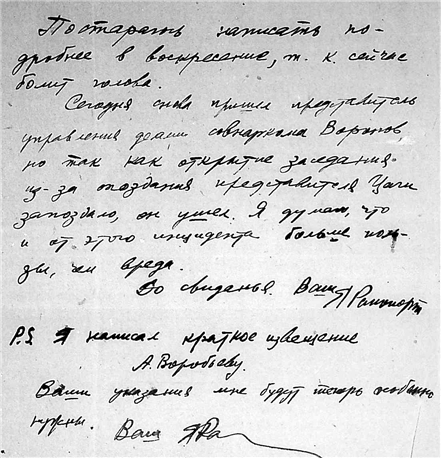 Постараюсь написать по-
дробнее в воскресение, т. к. сейчас
болит голова.
Сегодня снова пришел представитель
управления делами совнаркома Воронов,
но так как открытие заседания
из-за опоздания представителя Цаги
запоздало, он ушел. Я думаю, что
и от этого инцидента больше поль-
зы, чем вреда.
До свиданья. Ваш Я Рапопорт
P.S. Я написал краткое извещение
А. Воробьеву.
Ваши указания мне будут теперь особенно
нужны.
Ваш ЯРа